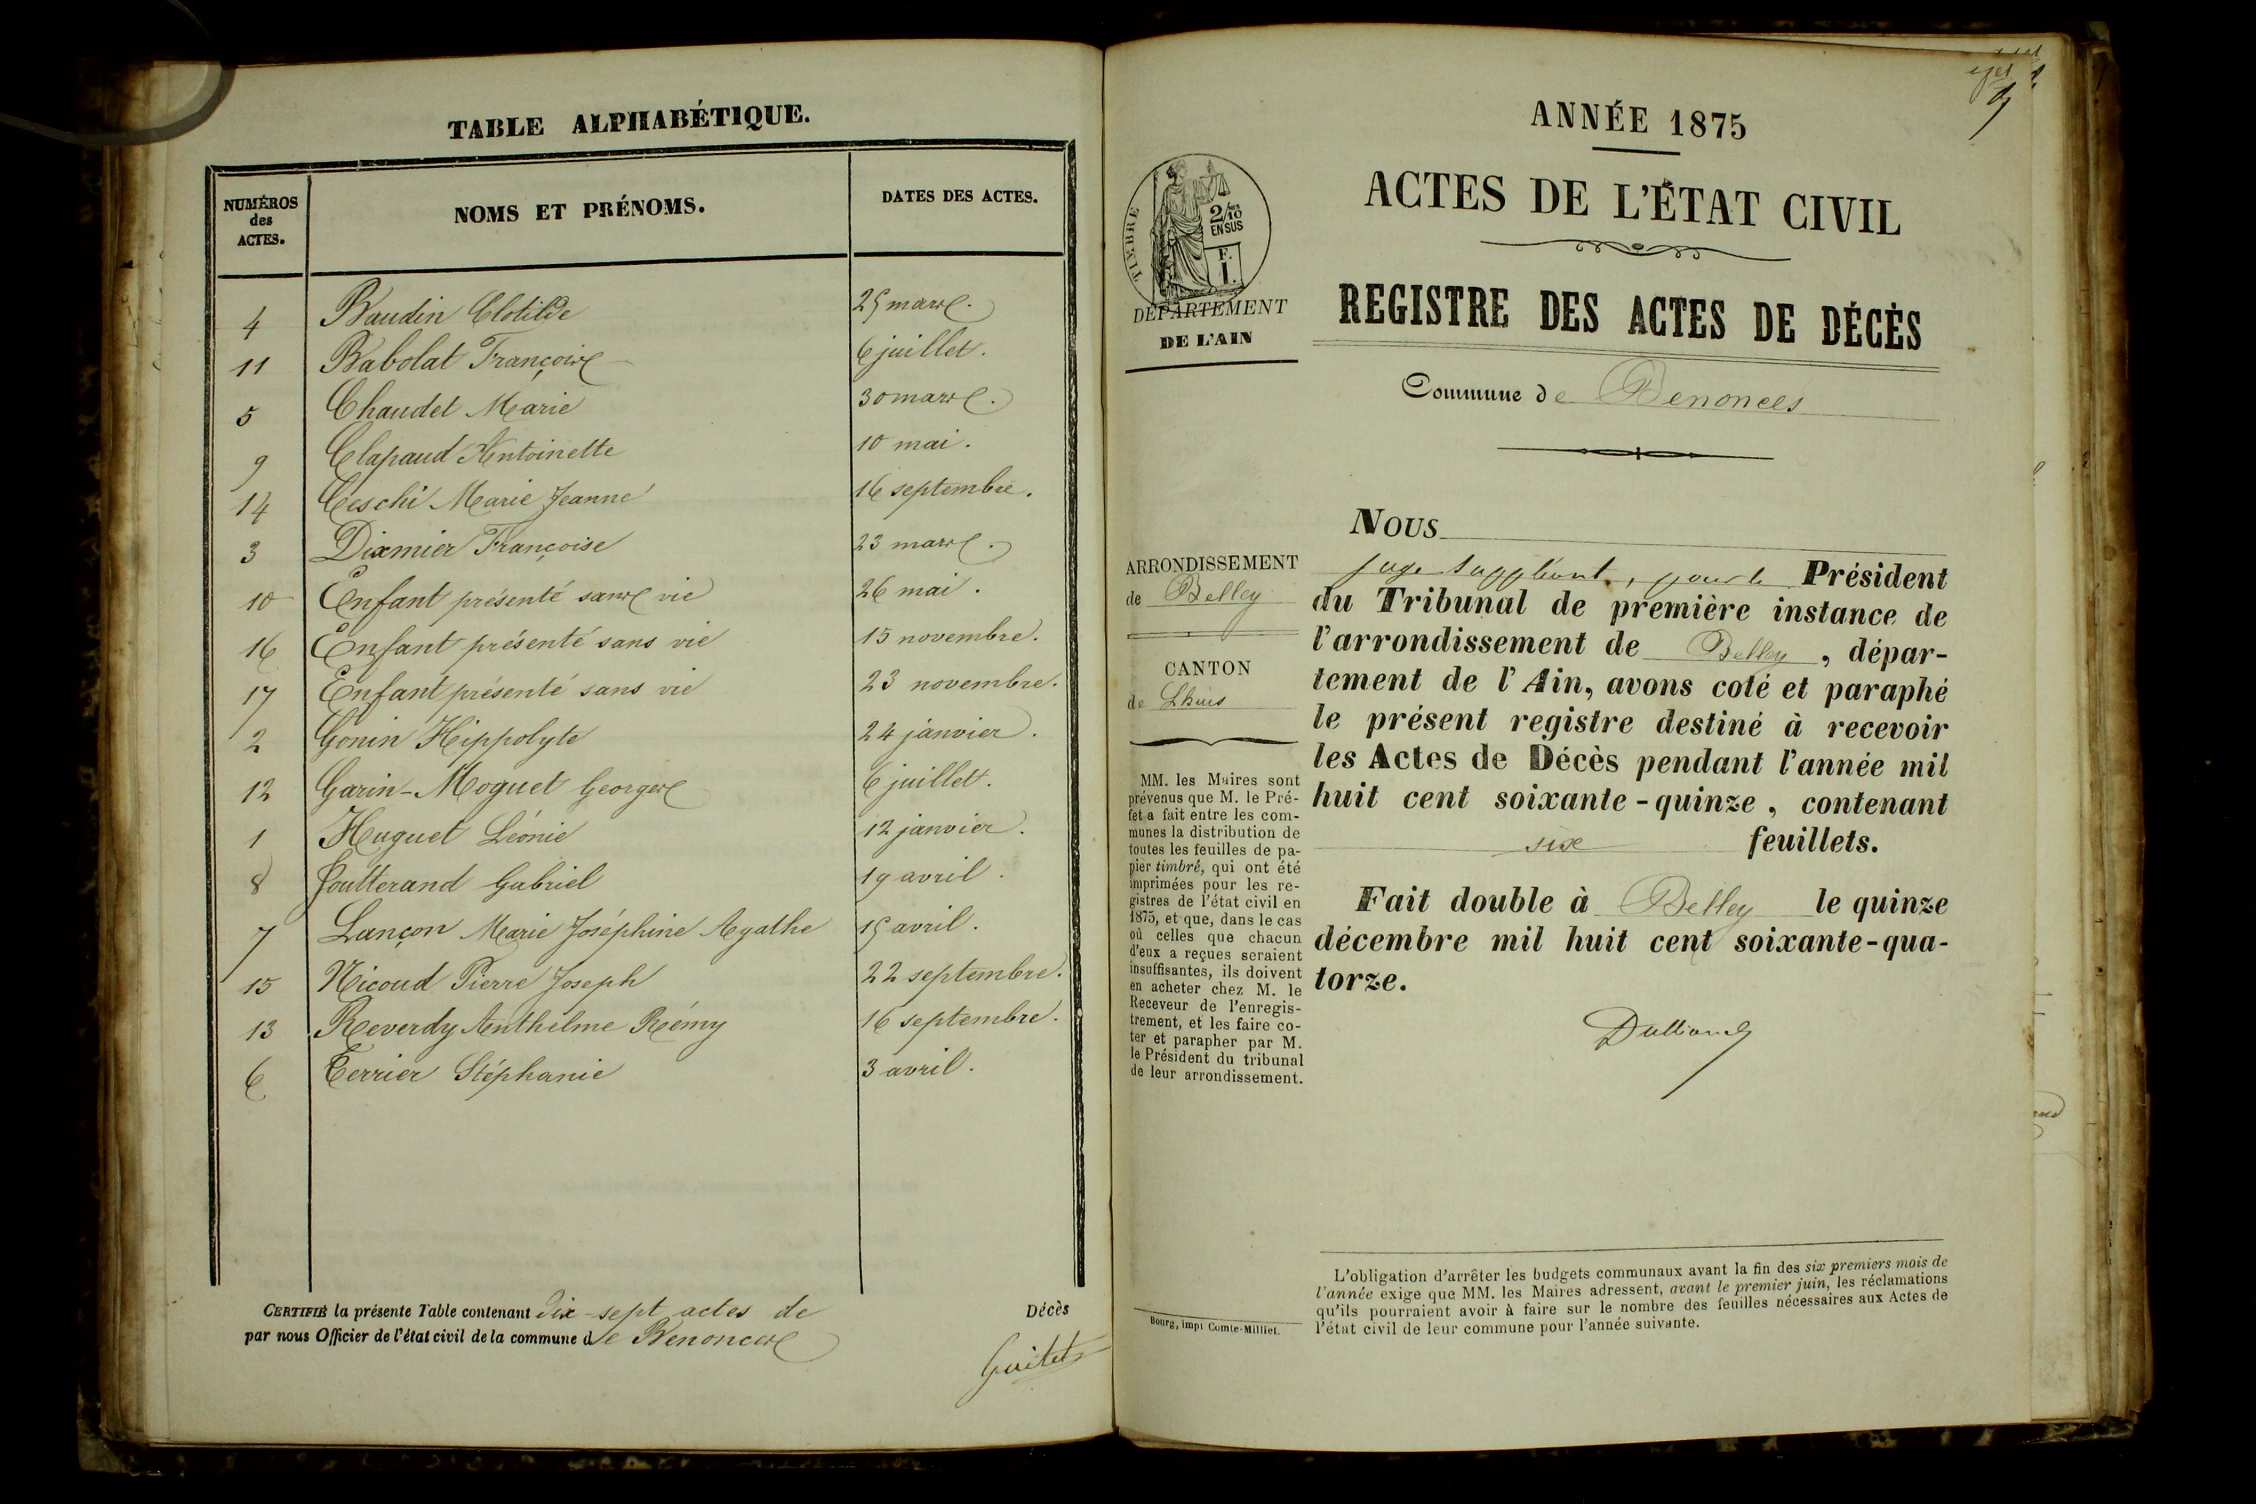 TABLE ALPHABÉTIQUE.
NUMÉROS des ACTES.
NOMS ET PRÉNOMS.
DATES DES ACTES.
4 Baudin Clotilde 25 mars.
11 Babolat François 6 juillet.
5 Chaudet Marie 30 mars.
9 Clapaud Antoinette 10 mai.
14 Ceschi Marie Jeanne 16 septembre.
3 Dixmier Françoise 23 mars.
10 Enfant présenté sans vie 26 mai.
16 Enfant présenté sans vie 15 novembre.
17 Enfant présenté sans vie 23 novembre.
2 Gonin Hippolyte 24 janvier.
12 Garin-Moguet Georges 6 juillet.
1 Huguet Léonie 12 janvier.
8 Joutterand Gabriel 19 avril.
7 Lançon Marie Joséphine Agathe 15 avril.
15 Nicoud Pierre Joseph 22 septembre.
13 Reverdy Anthelme Rémy 16 septembre.
6 Terrier Stéphanie 3 avril.
CERTIFIÉ la présente Table contenant dix-sept actes de Décès
par nous Officier de l'état civil de la commune de Benonces
Guitet
ANNÉE 1875
ACTES DE L'ÉTAT CIVIL
REGISTRE DES ACTES DE DÉCÈS
Commune de Benonces
TIMBRE
2/10
EN SUS
F.
1.
DÉPARTEMENT
DE L'AIN
ARRONDISSEMENT
de Belley
CANTON
de Lhuis
MM. les Maires sont
prévenus que M. le Pré-
fet a fait entre les com-
munes la distribution de
toutes les feuilles de pa-
pier timbré, qui ont été
imprimées pour les re-
gistres de l'état civil en
1875, et que, dans le cas
où celles que chacun
d'eux a reçues seraient
insuffisantes, ils doivent
en acheter chez M. le
Receveur de l'enregis-
trement, et les faire co-
ter et parapher par M.
le Président du tribunal
de leur arrondissement.
Bourg, impr Comte-Milliet.
NOUS
juge suppléant, pour le Président
du Tribunal de première instance de
l'arrondissement de Belley, dépar-
tement de l'Ain, avons coté et paraphé
le présent registre destiné à recevoir
les Actes de Décès pendant l'année mil
huit cent soixante-quinze, contenant
six feuillets.
Fait double à Belley le quinze
décembre mil huit cent soixante-qua-
torze.
L'obligation d'arrêter les budgets communaux avant la fin des six premiers mois de
l'année exige que MM. les Maires adressent, avant le premier juin, les réclamations
qu'ils pourraient avoir à faire sur le nombre des feuilles nécessaires aux Actes de
l'état civil de leur commune pour l'année suivante.